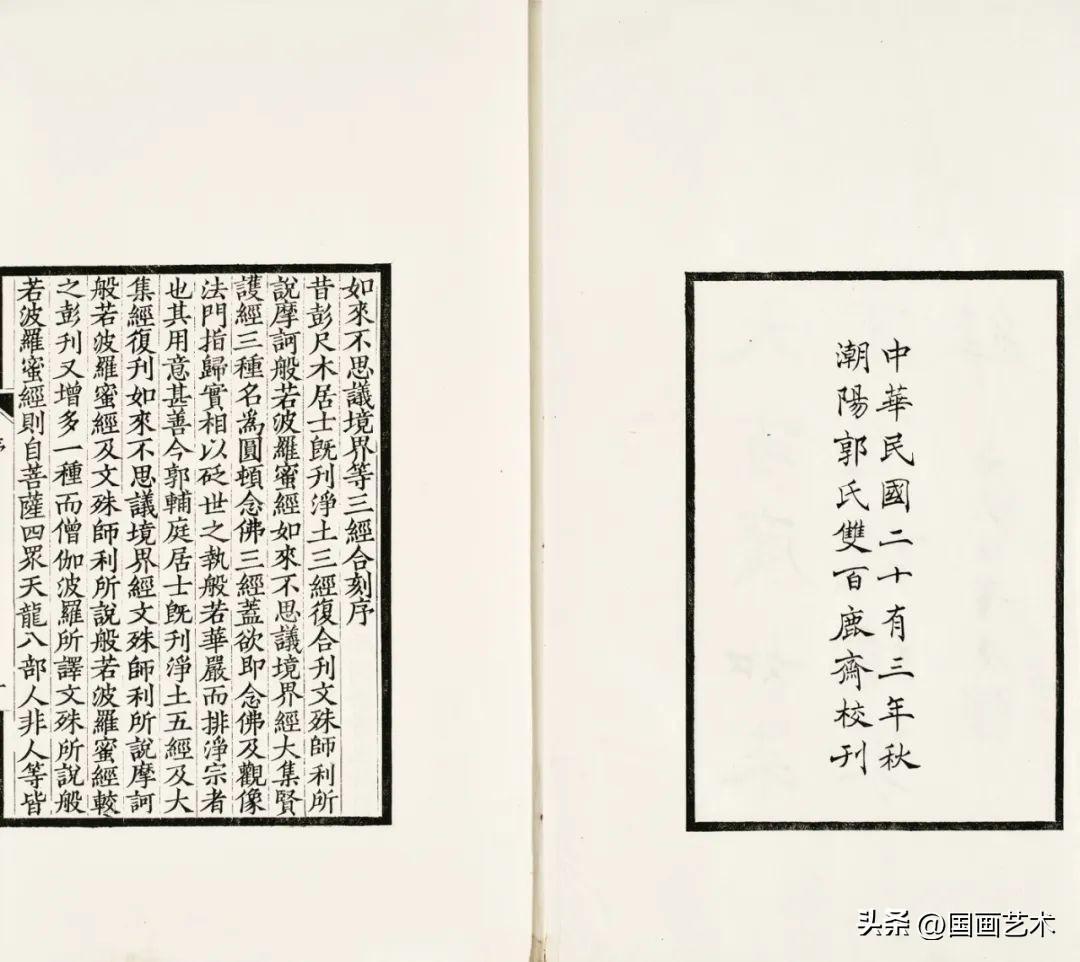 中華民國二十有三年秋
潮陽郭氏雙百鹿齋校刊
如來不思議境界等三經合刻序
昔彭尺木居士旣刊淨土三經復合刊文殊師利所
說摩訶般若波羅蜜經如來不思議境界經大集賢
護經三種名為圓頓念佛三經蓋欲即念佛及觀像
法門指歸實相以砭世之執般若華嚴而排淨宗者
也其用意甚善今郭輔庭居士旣刊淨土五經及大
集經復刊如來不思議境界經文殊師利所說摩訶
般若波羅蜜經及文殊師利所說般若波羅蜜經較
之彭刊又增多一種而僧伽波羅所譯文殊所說般
若波羅蜜經則自菩薩四眾天龍八部人非人等皆
序
一
头条 @国画艺术